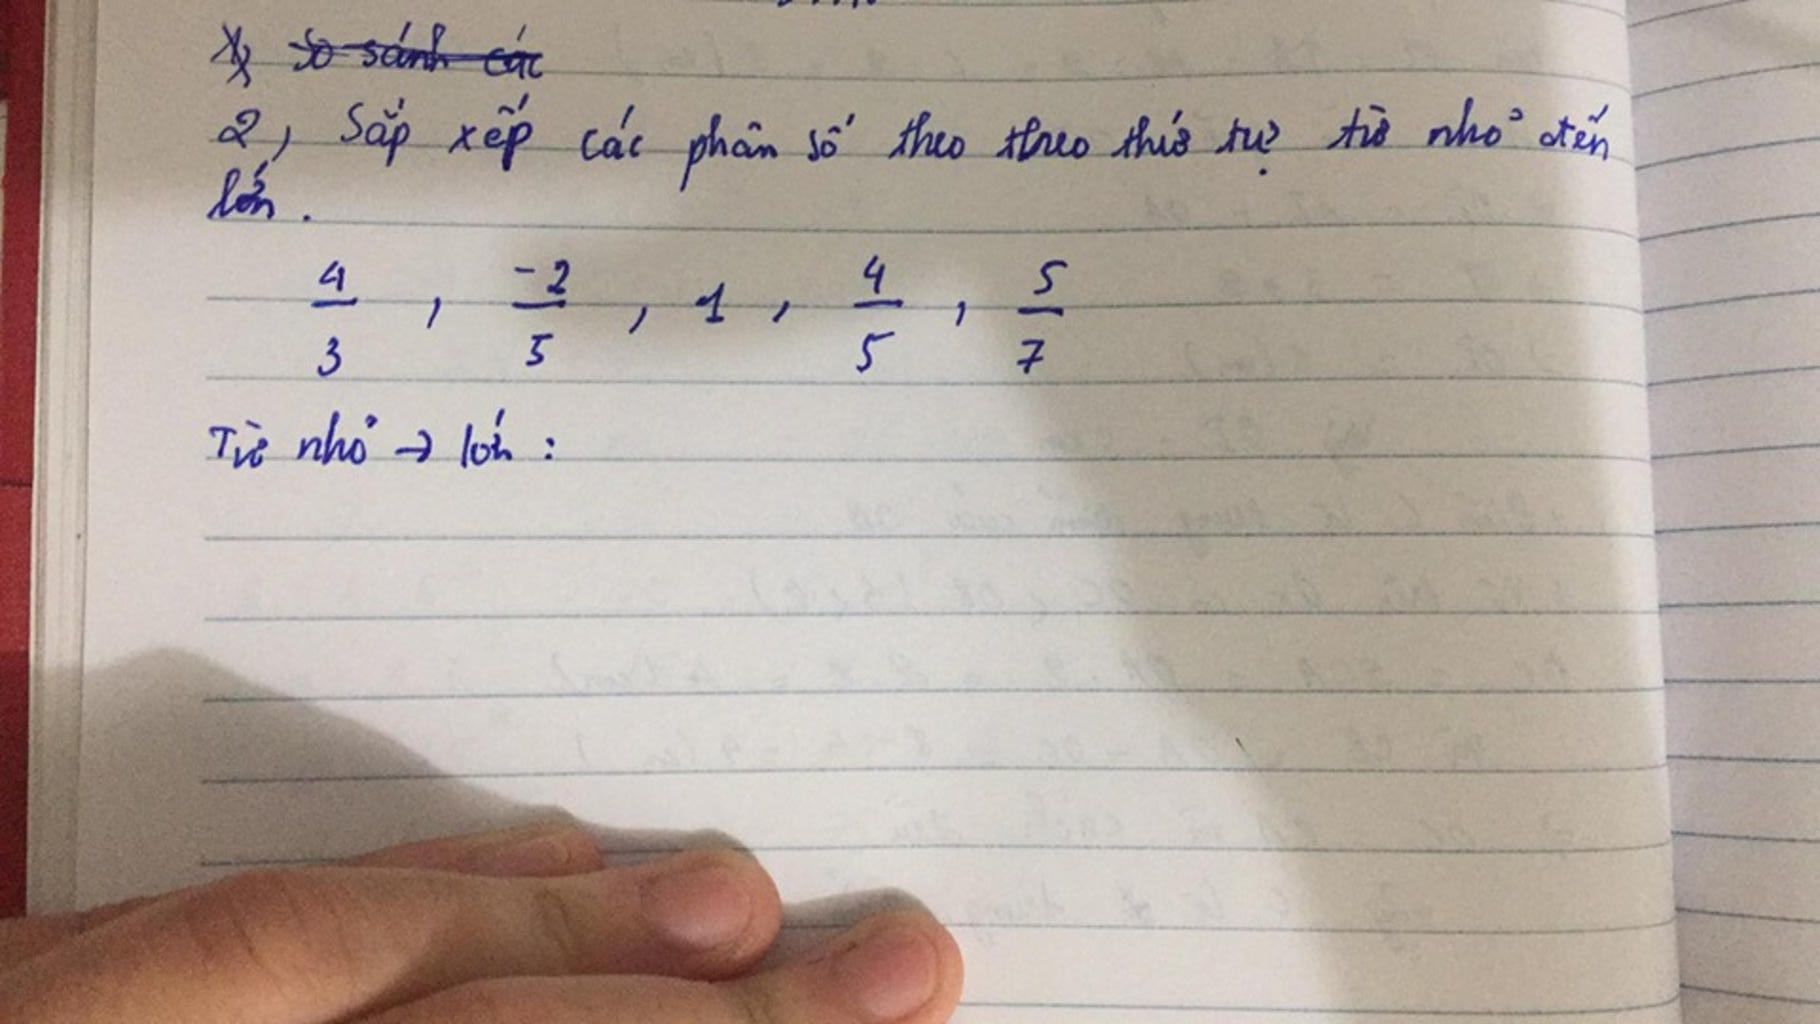 So sánh các
2, Sắp xếp các phân số theo theo thứ tự từ nhỏ đến
lớn.
4/3 , -2/5 , 1 , 4/5 , 5/7
Từ nhỏ → lớn :